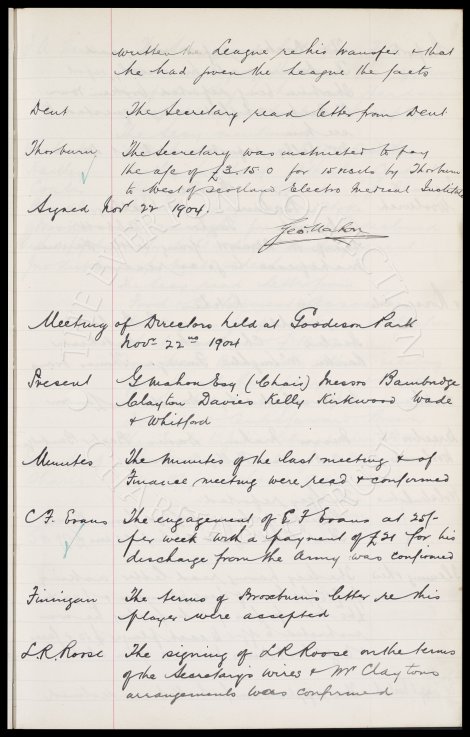 written the League re his transfer & that
he had given the League the facts
Dent The Secretary read letter from Dent
Thorburn The Secretary was instructed to pay
the a/c of £3.15.0 for 15 visits by Thorburn
to West of Scotland Electro Medical Institute
Signed Novr 22 1904.
Geo Mahon
Meeting of Directors held at Goodison Park
Novr 22nd 1904
Present G Mahon Esq (Chair) Messrs Bainbridge
Clayton Davies Kelly Kirkwood Wade
& Whitford
Minutes The minutes of the last meeting & of
Finance meeting were read & confirmed
C.F. Evans The engagement of C F Evans at 25/-
per week with a payment of £21 for his
discharge from the Army was confirmed
Finnigan The terms of Broxburn's letter re this
player were accepted
L.R. Roose The signing of L R Roose on the terms
of the Secretary's wires & Mr Clayton's
arrangements was confirmed